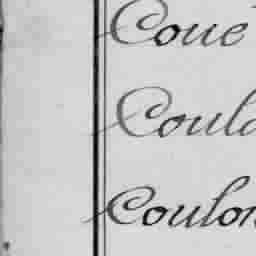 Coue
Coula
Coulon